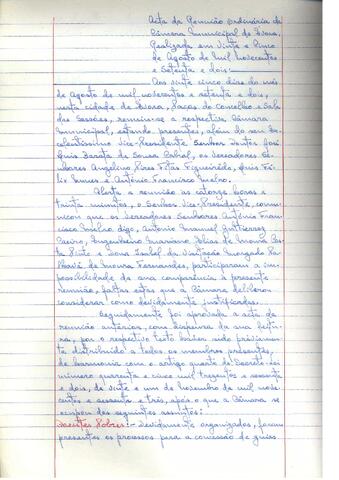 Acta da Reunião ordinária da
Câmara Municipal de Évora,
Realizada em Vinte e Cinco
de Agosto de Mil Novecentos
e Setenta e dois.
Aos vinte cinco dias do mês
de Agosto de mil novecentos e setenta e dois,
nesta cidade de Évora, Paços do Concelho e Sala
das Sessões, reuniu-se a respectiva Câmara
Municipal, estando presentes, além do seu Ex
celentíssimo Vice-Presidente Senhor Doutor José
Luís Barata de Sousa Cabral, os Vereadores Se
nhores Angelino Pires Fitas Figueiredo, Luís Fé
lix Nunes e António Francisco
Aberta a reunião às catorze horas e
trinta minutos, o Senhor Vice-Presidente, comu
nicou que os Vereadores Senhores António Fran
cisco digo, António Manuel Gutierrez
Engenheiro Mariano Dias de Moura
Pinto e Dona Isabel da Visitação Morgado
de Moura Fernandes, participaram a im
possibilidade da sua comparência à presente
reunião, faltas estas que a Câmara deliberou
considerar como devidamente justificadas.
Seguidamente foi aprovada a acta da
reunião anterior, com dispensa da sua leitu
ra, por o respectivo texto haver sido previamen
te distribuído a todos os membros presentes,
de harmonia com o artigo quarto do Decreto-Lei
número quarenta e cinco mil trezentos e sessenta
e dois, de vinte e um de Novembro de mil nove
centos e sessenta e três, após o que a Câmara se
ocupou dos seguintes assuntos:
Doentes Pobres:- Devidamente organizados, foram
presentes os processos para a concessão de guias